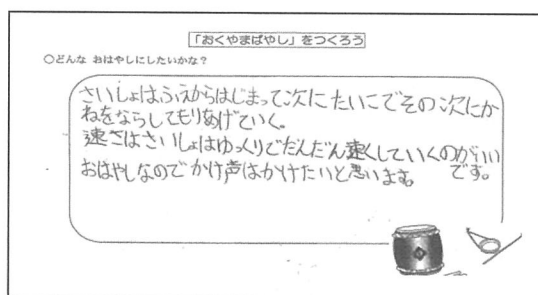 「おくやまばやし」をつくろう
○どんな おはやしにしたいかな？
さいしょはふえからはじまって次にたいこでその次にか
ねをならしてもりあげていく。
速さはさいしょはゆっくりでだんだん速くしていくのがいい
です。
おはやしなのでかけ声はかけたいと思います。